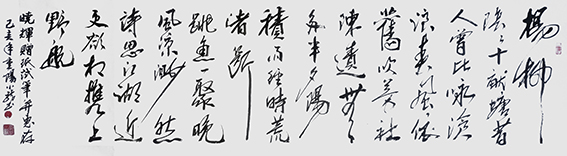 楊柳
陰々十畝塘昔
人曾此詠滄
浪春風依
舊吹芳杜
陳迹無
多半夕陽
積雨經時荒
渚斷
跳魚一聚晚
風涼渺然
詩思江湖近
便欲相攜上
野航
曉輝贈紙試筆并惠存
己亥年重陽